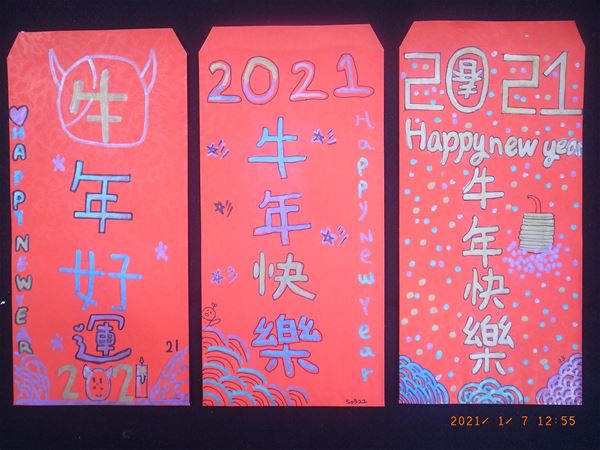 牛年好運
HAPPY NEW YEAR
21
2021
2021
牛年快樂
Happy New year
2021
Happy new year
牛年快樂
2021/ 1/ 7 12:55